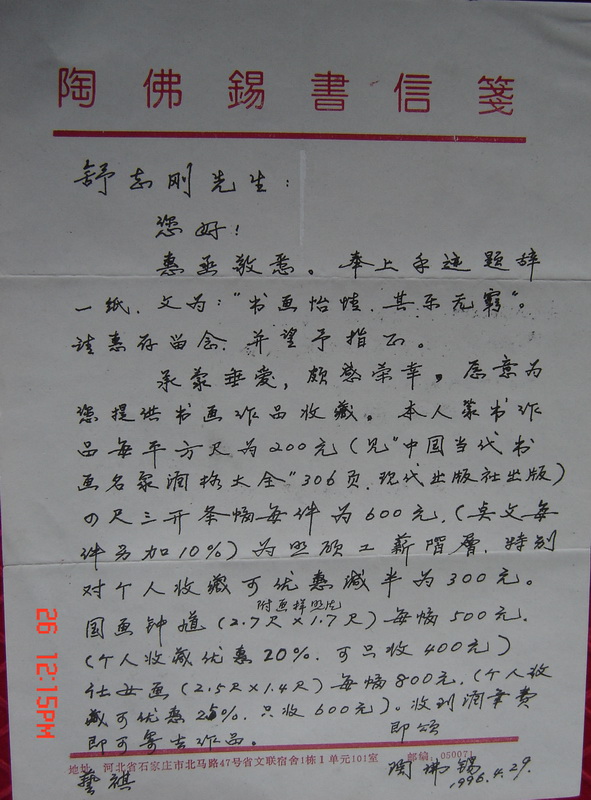 陶佛錫書信箋
舒志刚先生：
您好！
惠函敬悉。奉上手迹题辞
一纸．文为："书画怡情．其乐无窮"。
请惠存留念．并望予指正。
承蒙垂爱，颇感荣幸，愿意为
您提供书画作品收藏。本人篆书作
品每平方尺为200元（见"中国当代书
画名家润格大全"306页．现代出版社出版）
四尺三开条幅每件为600元．（点文每
件另加10%）为照顾工薪階層．特别
对个人收藏可优惠减半为300元。
附画样照片
国画钟馗（2.7尺×1.7尺）每幅500元．
（个人收藏优惠20%．可只收400元）
仕女画（2.5尺×1.4尺）每幅800元．（个人收
藏可优惠25%．只收600元）。收到润笔费
即可寄去作品。 即颂
地址：河北省石家庄市北马路47号省文联宿舍1栋1单元101室 邮编：050071
藝祺 陶佛锡
1996.4.29.
26 12:15PM